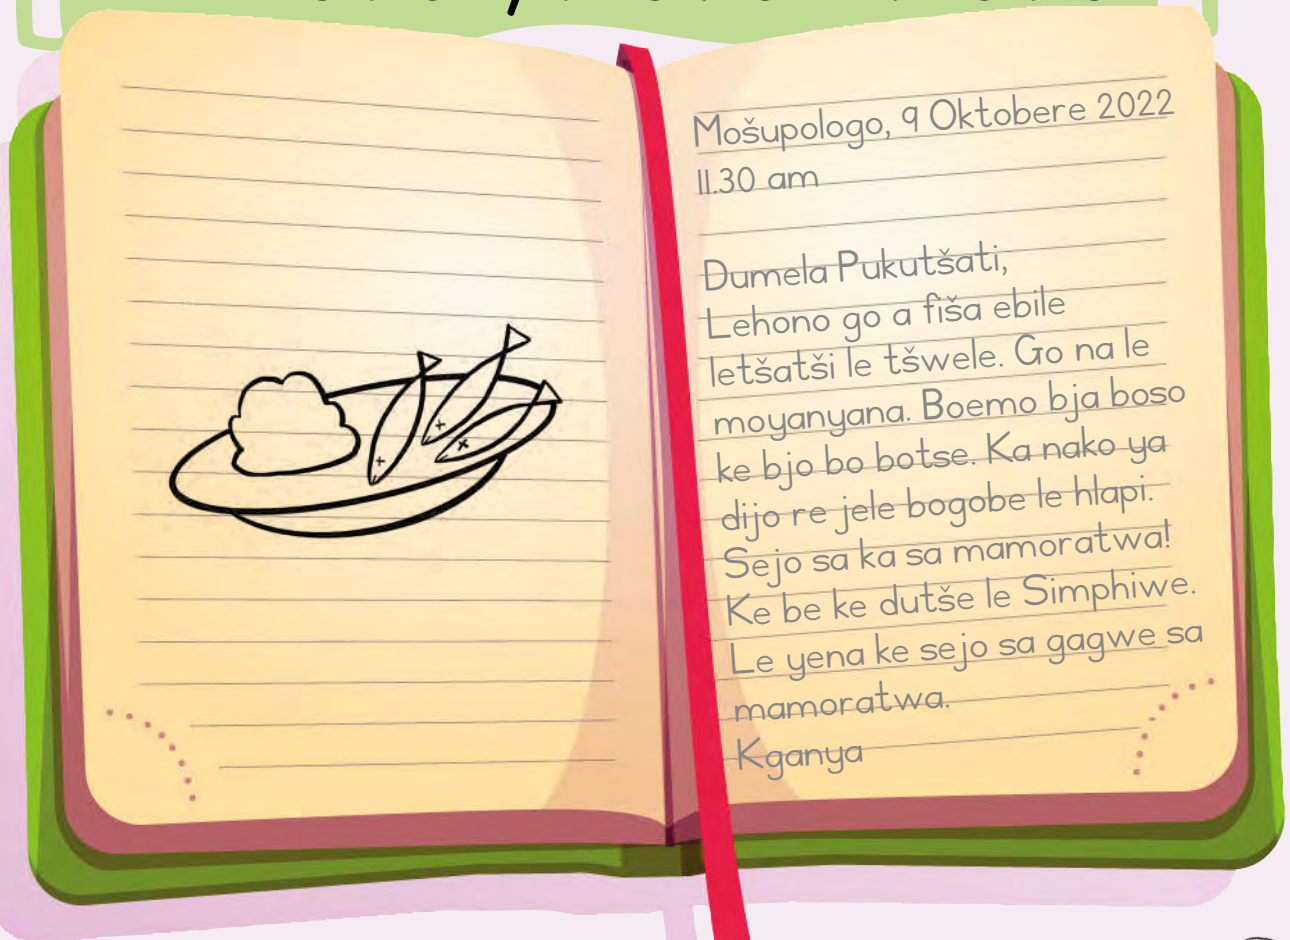 Mošupologo, 9 Oktobere 2022
11.30 am
Dumela Pukutšati,
Lehono go a fiša ebile
letšatši le tšwele. Go na le
moyanyana. Boemo bja boso
ke bjo bo botse. Ka nako ya
dijo re jele bogobe le hlapi.
Sejo sa ka sa mamoratwa!
Ke be ke dutše le Simphiwe.
Le yena ke sejo sa gagwe sa
mamoratwa.
Kganya